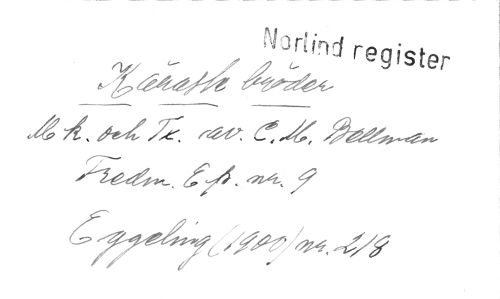 Norlind register
Käraste bröder
Mk. och Tx. av C. M. Bellman
Fredm. Ep. nr. 9
Eggeling (1900) nr. 218